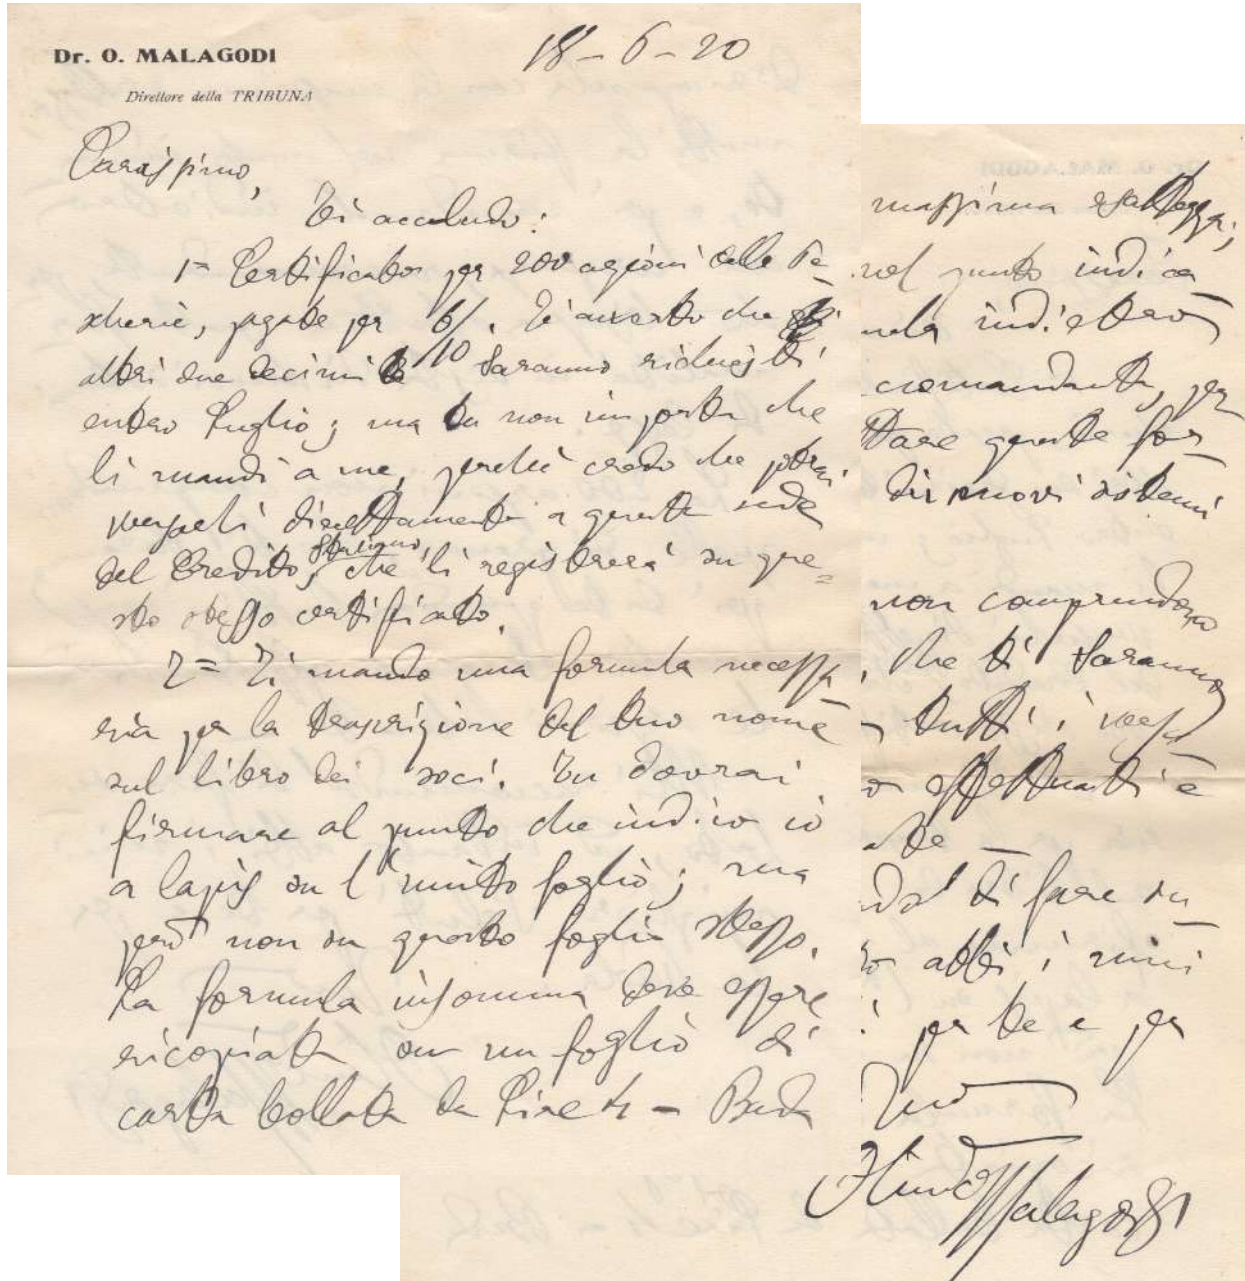 Dr. O. MALAGODI
Direttore della TRIBUNA
18-6-20
Carissimo,
Ti accludo:
1= Certificato per 200 azioni delle Pe-
scherie, pagate per 6/10. Ti avverto che gli
altri due decimi saranno richiesti
entro Luglio; ma tu non importa che
li mandi a me, perché credo che potrai
versarli direttamente a questa sede
del Credito Italiano, che li registrerà su que=
sto stesso certificato.
2= Ti mando una formula necessa
ria per la trascrizione del tuo nome
sul libro dei soci. Tu dovrai
firmare al punto che indico io
a lapis su l'unito foglio; ma
però non su questo foglio stesso.
La formula insomma deve essere
ricopiata su un foglio di
carta bollata da Lire 4 - Bada
massima esattezza;
nel punto indica
indietro
raccomandata, per
questa for
di nuovi sistemi
non comprendono
, che ti saranno
tutti i versa
effettuati e
di fare su
abbi i miei
per te e per
tuo
Olindo Malagodi